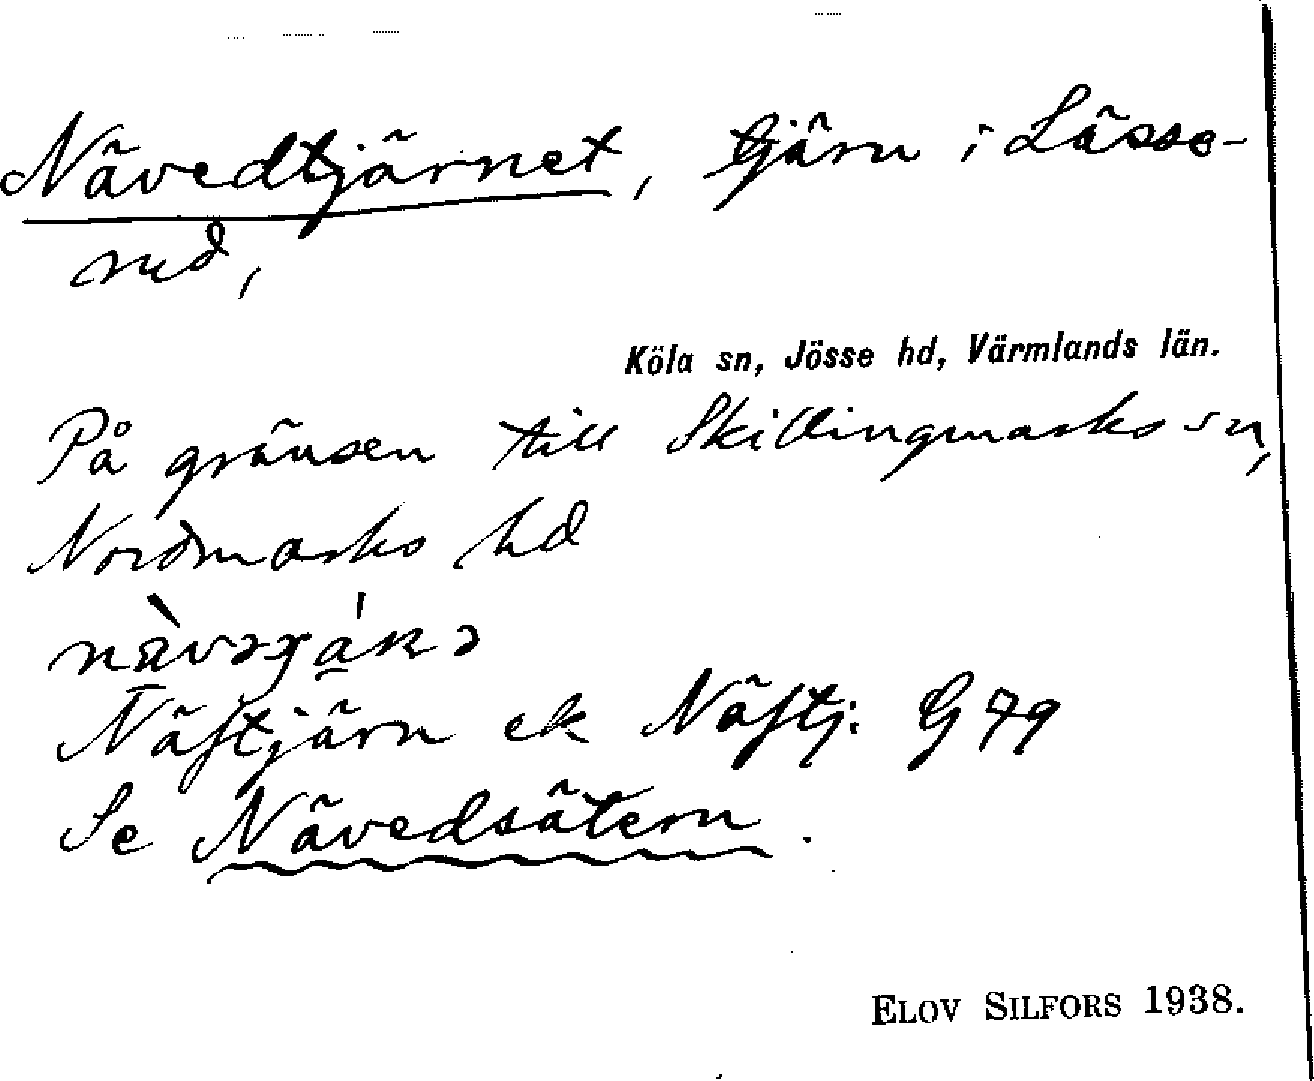 Nävedtjärnet, tjärn i Lässe-
rud,
Köla sn, Jösse hd, Värmlands län.
På gränsen till Skillingmarks sn,
Nordmarks hd
Näftjärn ek Näftj: G 79
Se Nävedsätern.
ELOV SILFORS 1938.